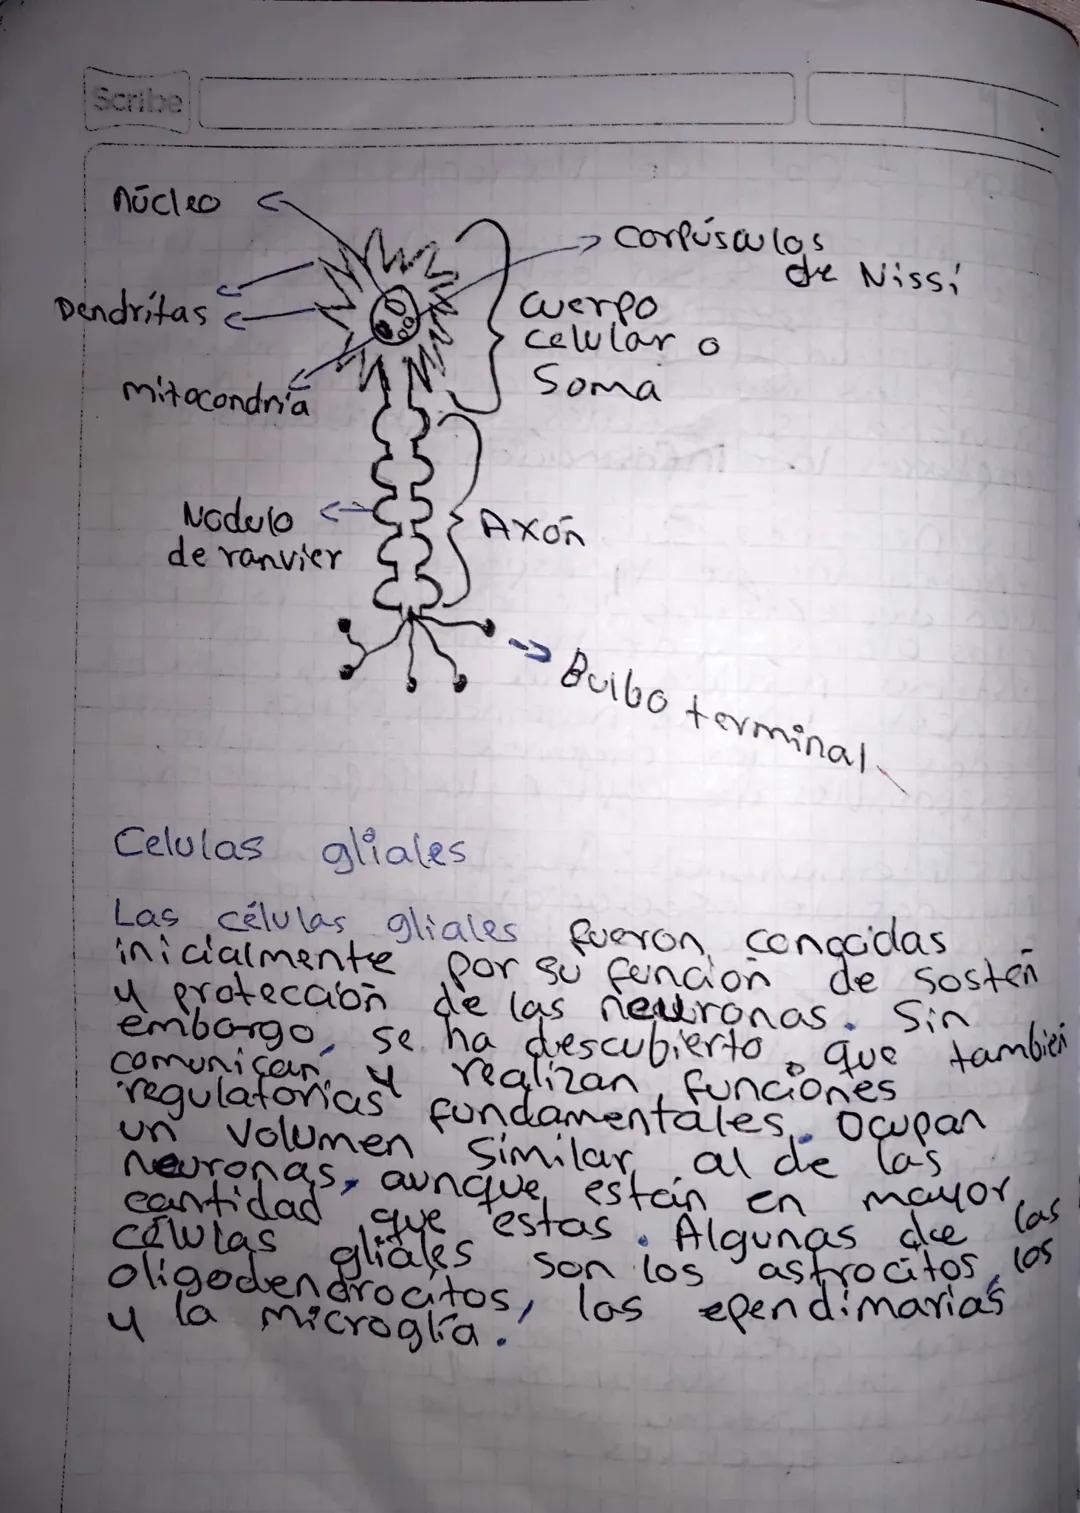 Scribe
núcleo
corpúsculos
de Nissi
Dendrítas
cuerpo
celular o
Soma
mitocondria
Nodulo
de ranvier
Axón
Bulbo terminal
Celulas gliales
Las células gliales fueron conocidas
inicialmente por su función de sostén
y protección de las neuronas. Sin
embargo, se ha descubierto que también
comunican y realizan funciones
regulatorias fundamentales. Ocupan
un volumen similar al de las
neuronas, aunque están en mayor
cantidad que estas. Algunas de las
células gliales son los astrocitos, los
oligodendrocitos, las ependimarias
y la microglía.